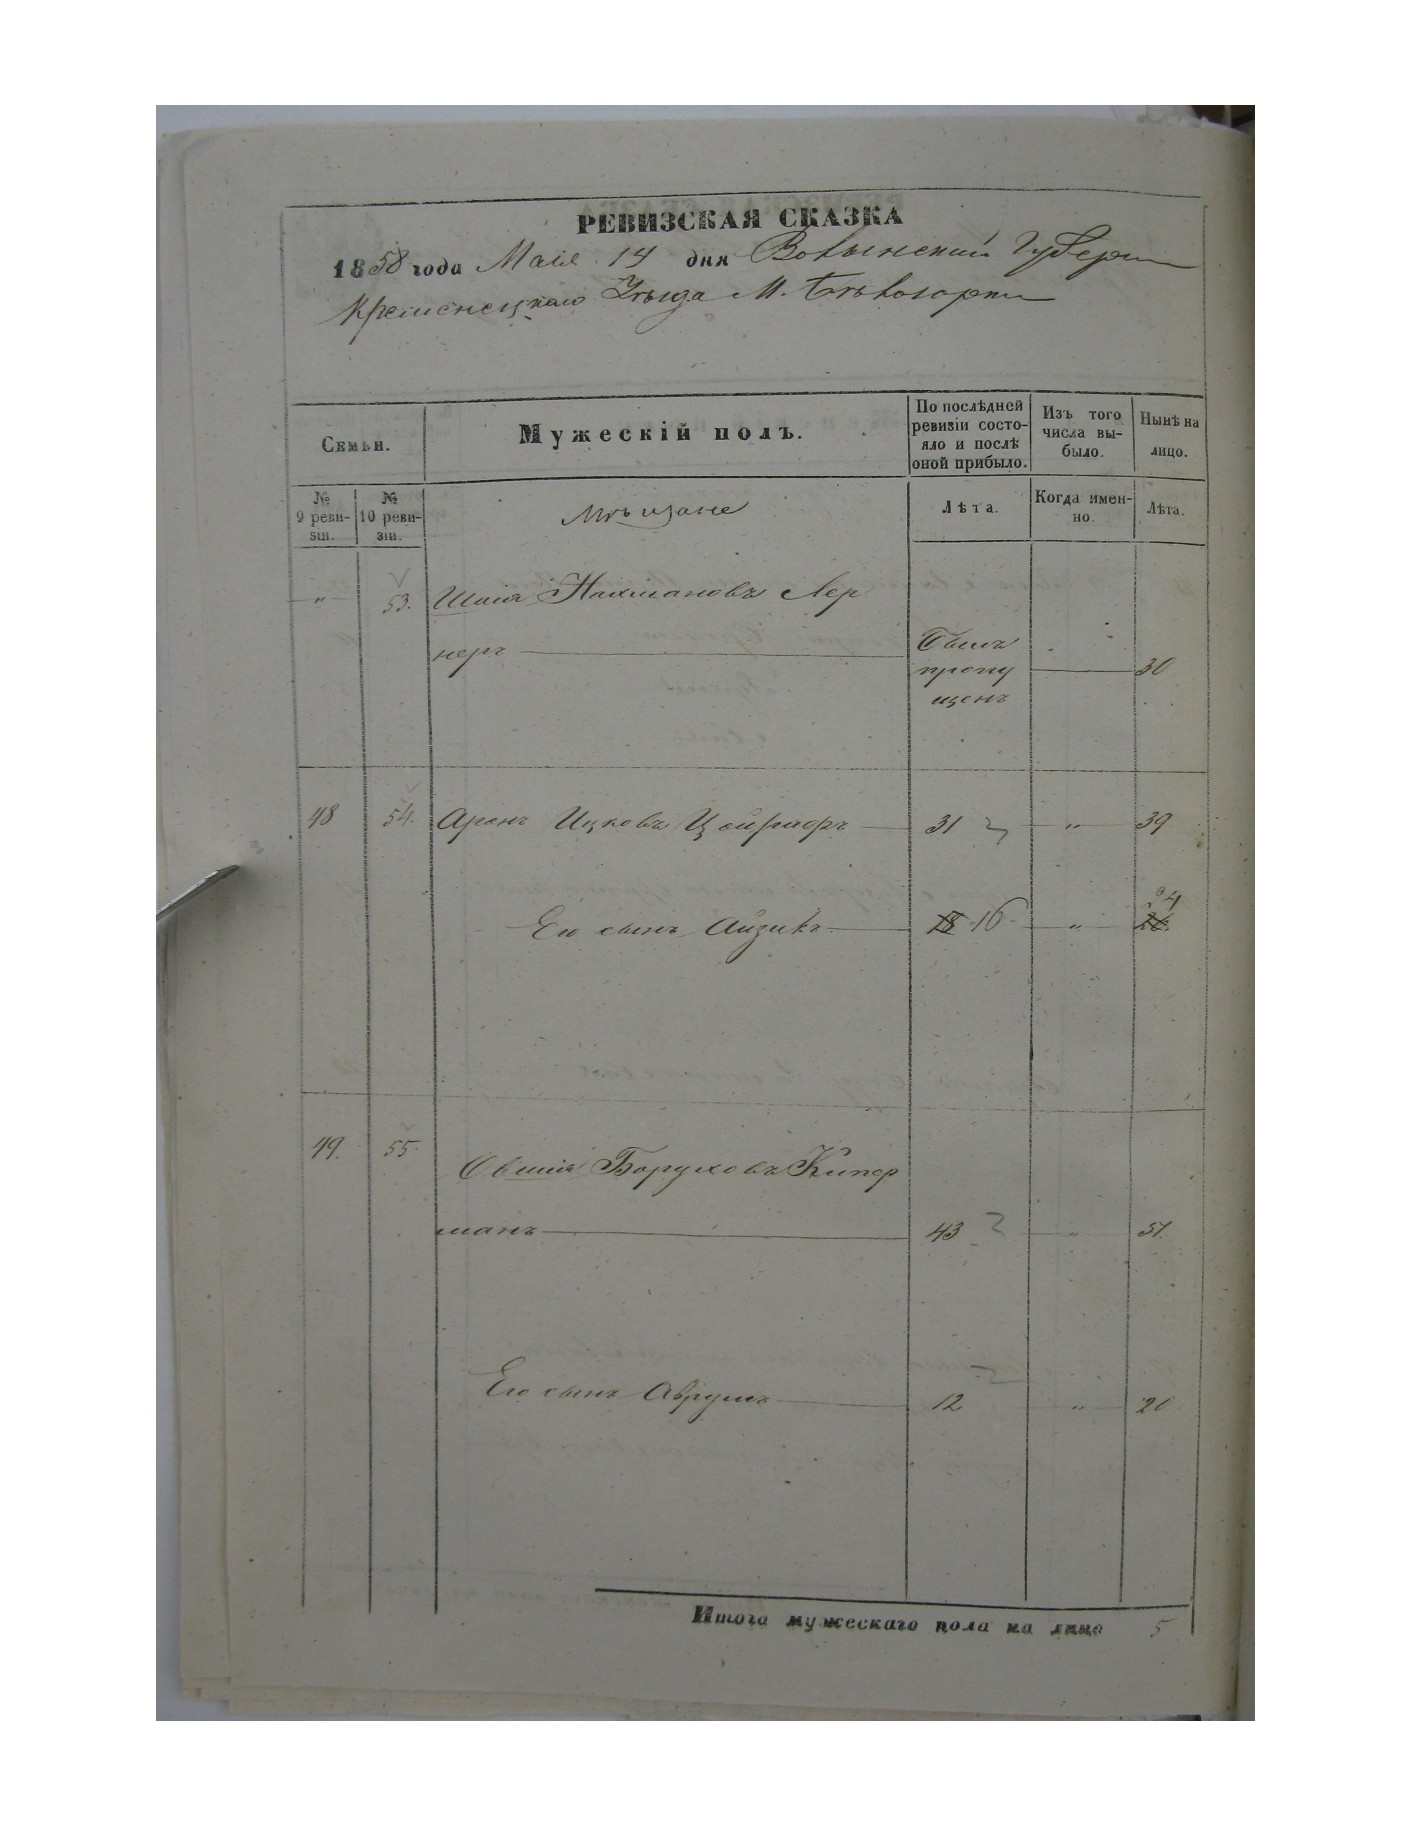 РЕВИЗСКАЯ СКАЗКА
1858 года Маія 14 дня Волынской Губерніи
Кременецкаго Уѣзда М. Бѣлозорки
Семьи.
Мужескій полъ.
По послѣдней ревизіи состояло и послѣ оной прибыло.
Изъ того числа выбыло.
Нынѣ на лицо.
№ 9 ревизіи.
№ 10 ревизіи.
Мѣщане
Лѣта.
Когда именно.
Лѣта.
" 53. Шаія Нахмановъ Лер
неръ Былъ пропущенъ 30
48 54. Аронъ Ицковъ 31 " 39
Его сынъ Айзикъ 18 16 " 26 24
49. 55. Овшія Боруховъ Кипер
манъ 43 " 51.
Его сынъ Аврумъ 12 " 20
Итого мужескаго пола на лицо 5